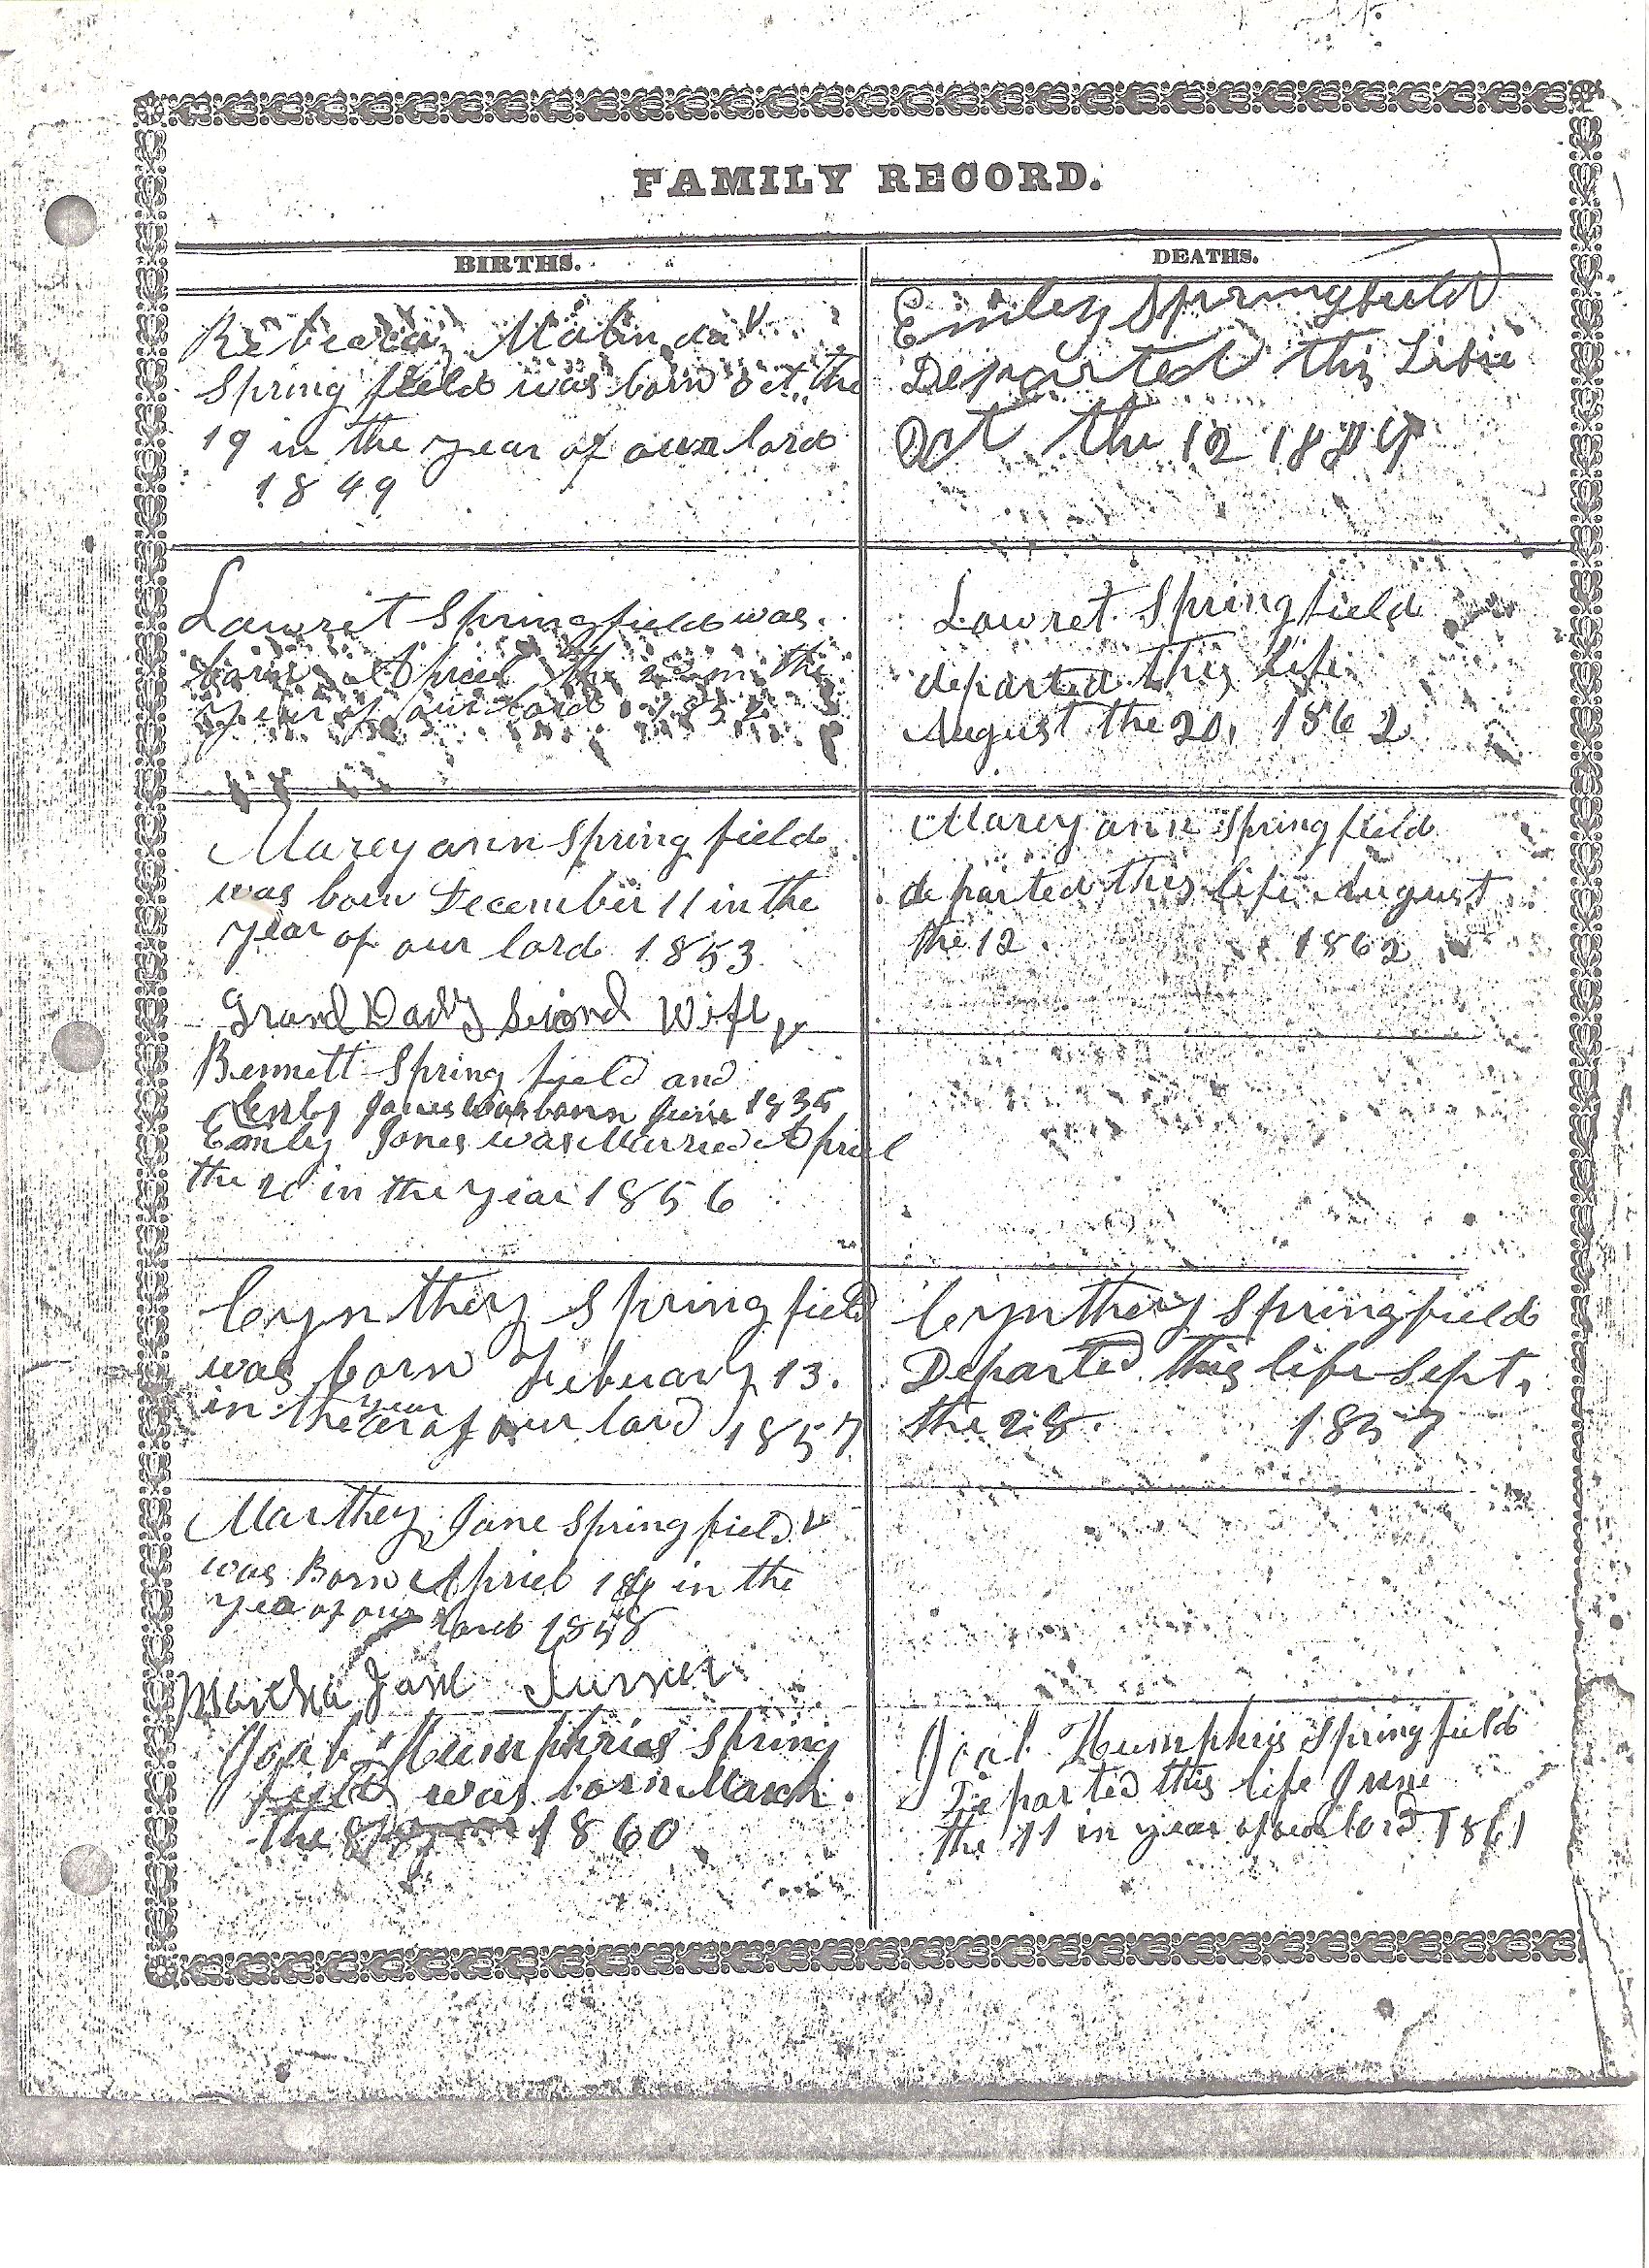 FAMILY RECORD.
BIRTHS.
Rebecca Malinda
Springfield was born oct the
19 in the year of our lord
1849
Lawret Springfield was
born Apriel the in the
year of our lord 185
Marey ann Springfield
was born December 11 in the
year of our lord 1853
Grand Dady Second Wife
Bennett Springfield and
Emly Jones was born June 1835
Emly Jones was Married Apriel
the 20 in the year 1856
Cynthey Springfield
was born Febuary 13.
year
in the of our lord 1857
Marthey Jane Springfield
was Born Apriel in the
year of our Lord 1858
Martha Jane Turner
Joab Humphries Spring
field was born March
the 1860
DEATHS.
Emiley Springfield
Departed this Life
Oct the 12
Lowret Springfield
departed this life
August the 20, 1862
Marey ann Springfield
departed this life August
the 12 1862
Cynthey Springfield
Departed this life Sept,
the 28. 1857
Joab Humphris Springfield
Departed this life June
the 11 in year of our lord 1861